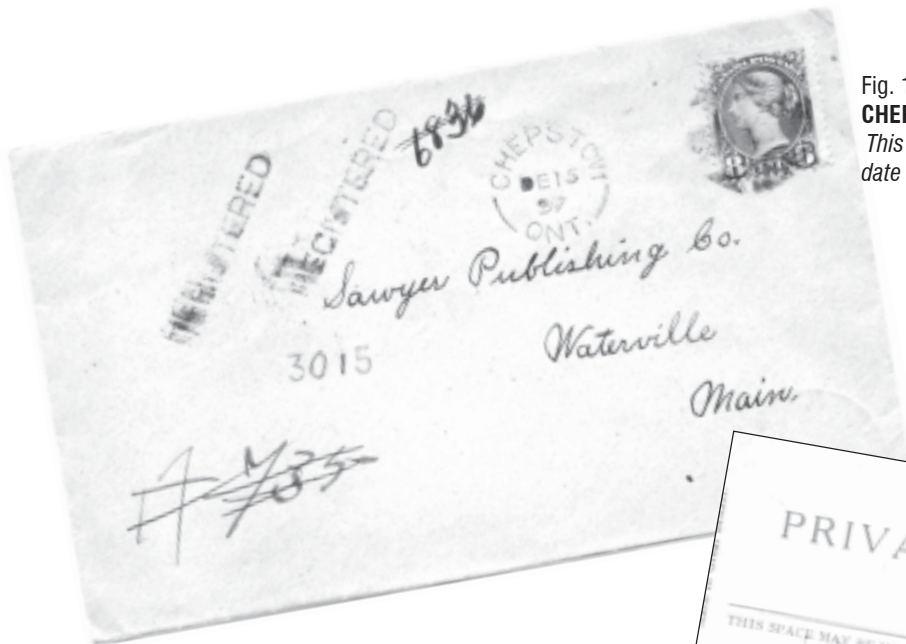 Fig. 1
CHEP
This
date
REGISTERED
REGISTERED
6836
CHEPSTOW
DE 15
97
ONT.
Sawyer Publishing Co.
Waterville
Main.
3015
PRIVA
THIS SPACE MAY BE